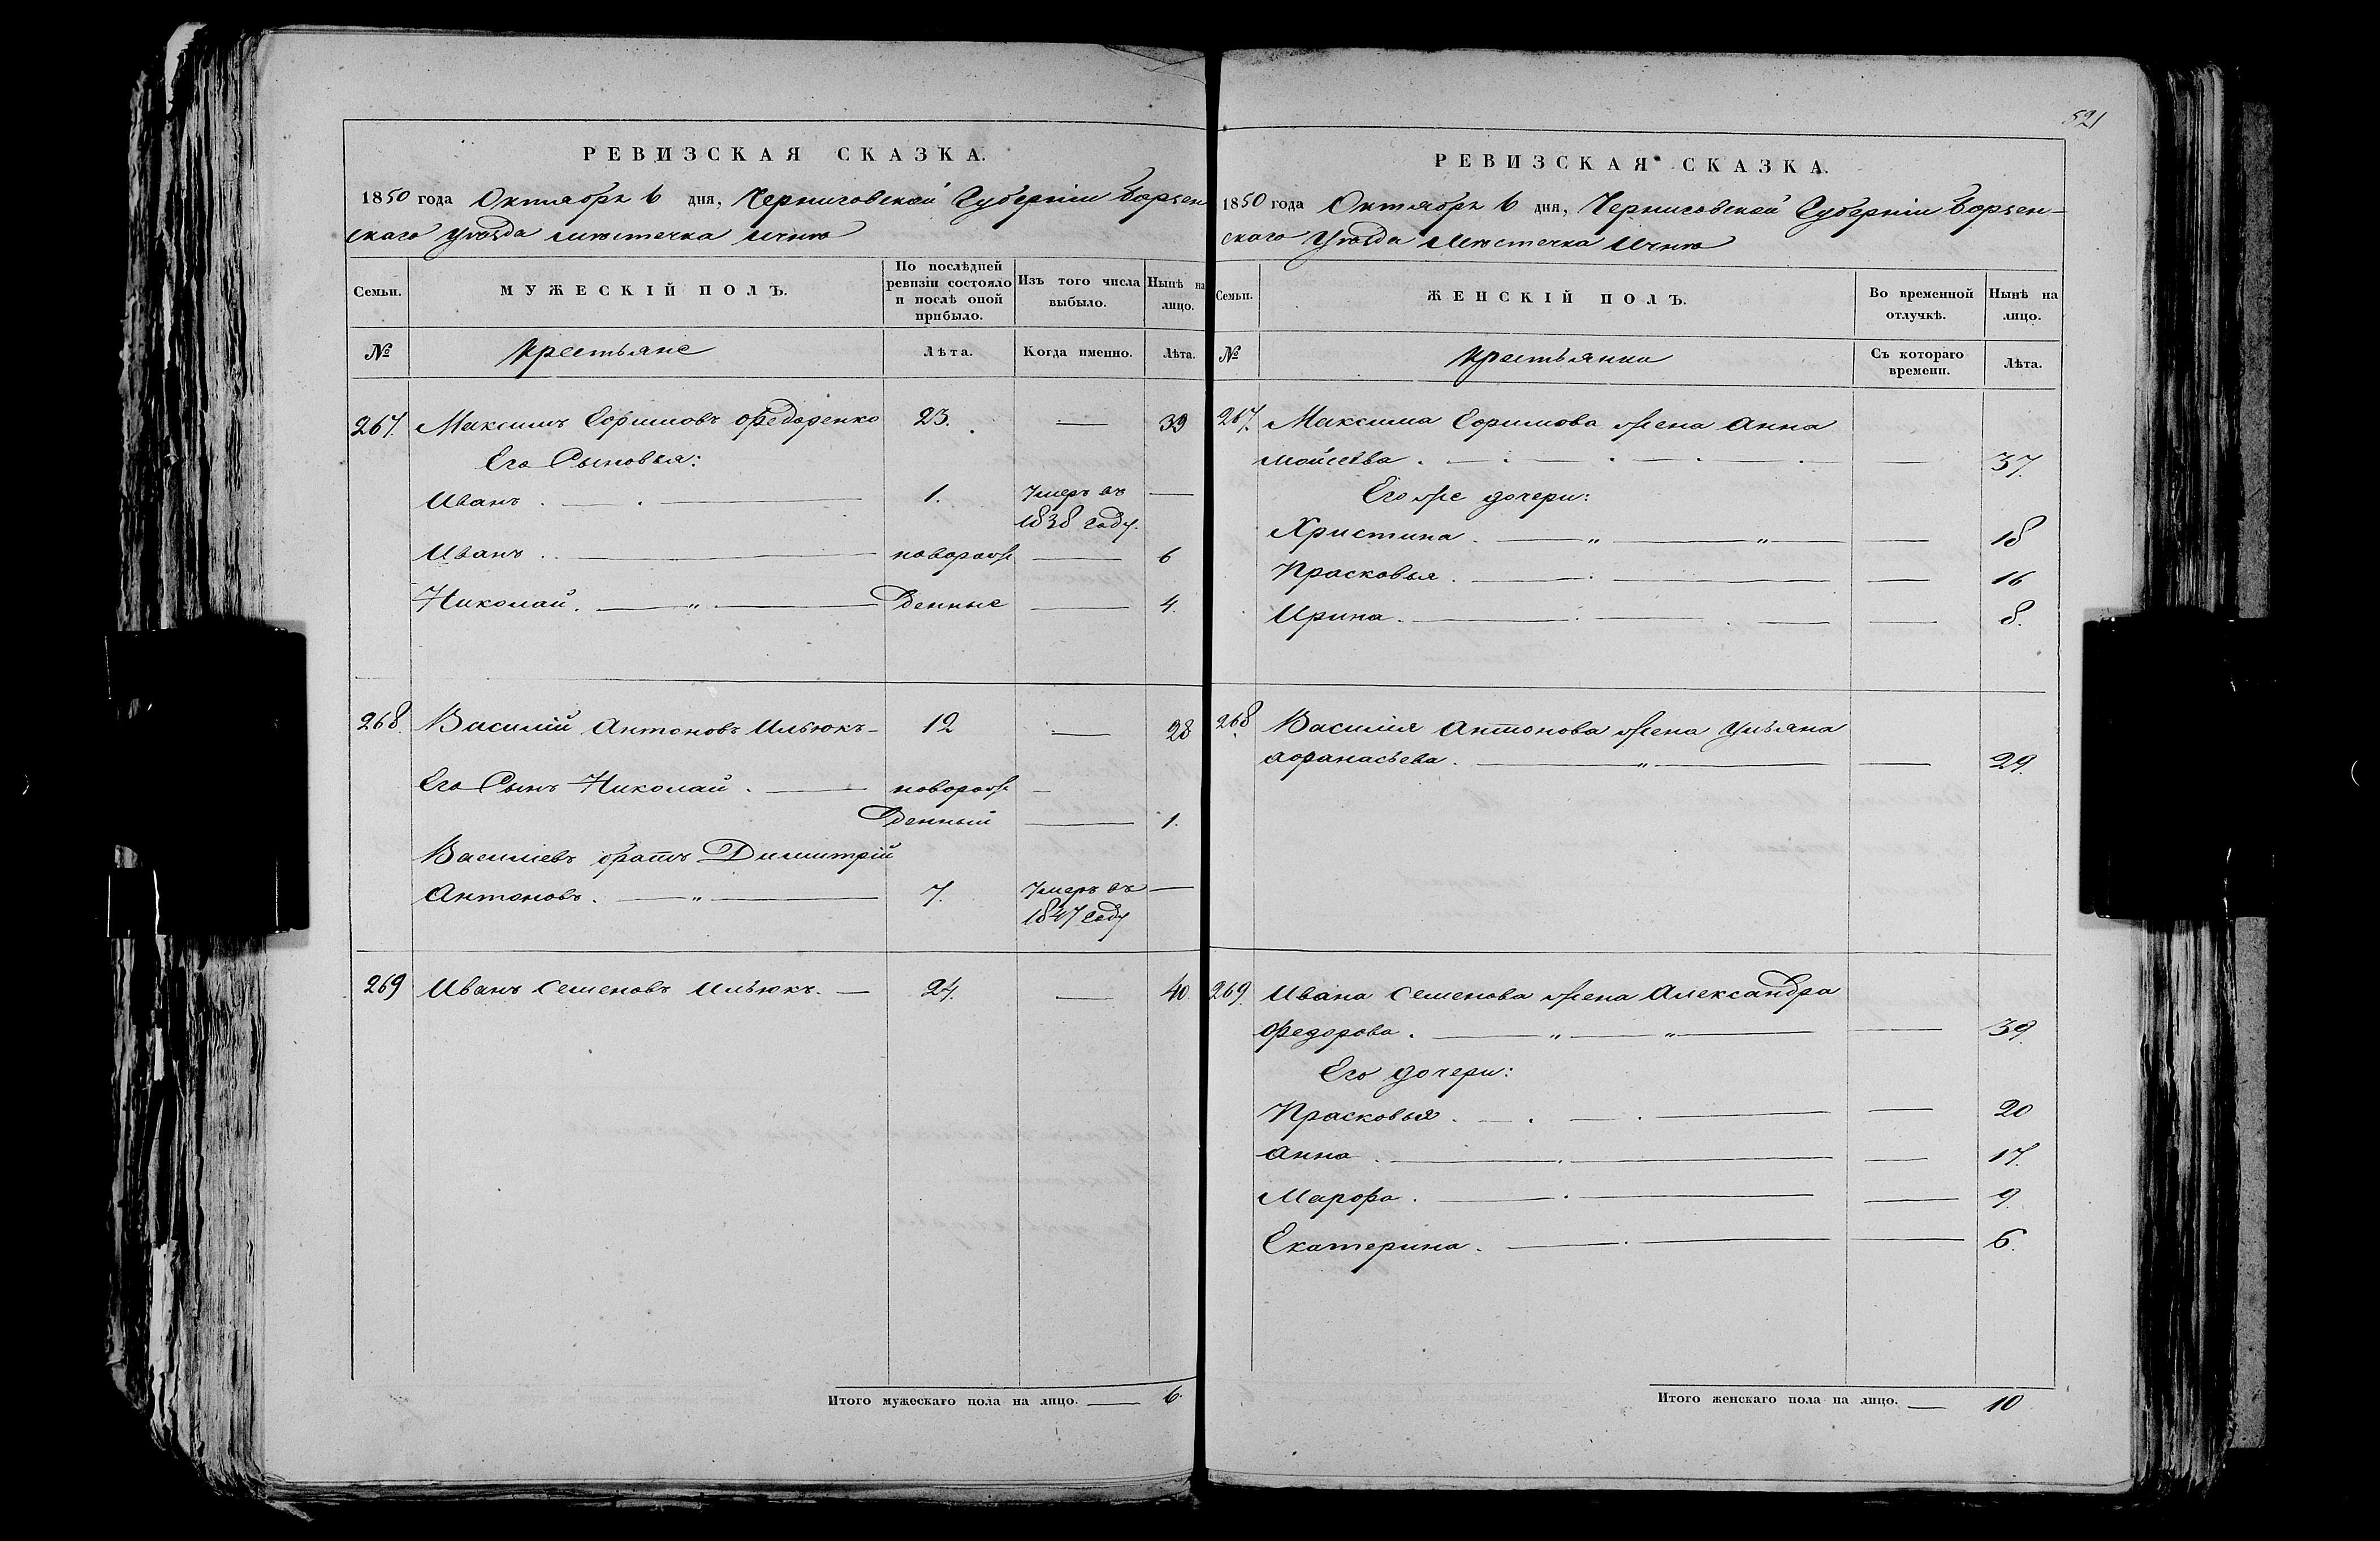 РЕВИЗСКАЯ СКАЗКА.
1850 года Октября 6 дня, Черниговской Губерніи Борзен
скаго Уѣзда мѣстечка Ични
Семьи.
МУЖЕСКІЙ ПОЛЪ.
По послѣдней
ревизіи состояло
и послѣ оной
прибыло.
Изъ того числа
выбыло.
Нынѣ на
лицо.
№
Крестьяне
Лѣта.
Когда именно.
Лѣта.
267. Максимъ Ефимовъ Федоренко 23. — 39
Его Сыновья:
Иванъ . — . — 1. Умеръ въ —
1838 году.
Иванъ . . — новорож — 6
Николай . — „ — денные — 4.
268. Василій Антоновъ Ильюкъ — 12 — 28
Его Сынъ Николай . — новорож —
денный — 1.
Васильевъ братъ Димитрій
Антоновъ . — „ — 7. Умеръ въ —
1847 году
269 Иванъ Семеновъ Ильюкъ . — 24. — 40.
Итого мужескаго пола на лицо. — 6.
521
РЕВИЗСКАЯ СКАЗКА.
1850 года Октября 6 дня, Черниговской Губерніи Борзен-
скаго Уѣзда Мѣстечка Ични
Семьи.
ЖЕНСКІЙ ПОЛЪ.
Во временной
отлучкѣ.
Нынѣ на
лицо.
№
Крестьянки
Съ котораго
времени.
Лѣта.
267. Максима Ефимова жена Анна
Мойсеева . — . — . — . — — 37.
Его же дочери:
Христина . — „ — „ — — 18
Прасковья . — . — — 16
Ирина . — . — . — — 8.
268. Василія Антонова жена Ульяна
Афанасьева . — „ — — 29.
269. Ивана Семенова жена Александра
Федорова . — „ — „ — — 39.
Его дочери:
Прасковья . — . — . — — 20
Анна . — . — — 17.
Марфа . — . — — 9.
Екатерина . — . — — 6.
Итого женскаго пола на лицо. — 10